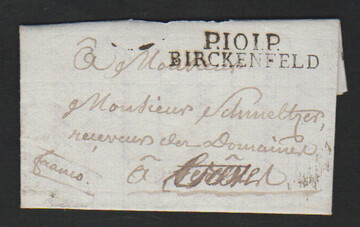 P.101.P.
BIRCKENFELD
à Monsieur
Monsieur Schmeltzer,
receveur des Domaines
à
franco.